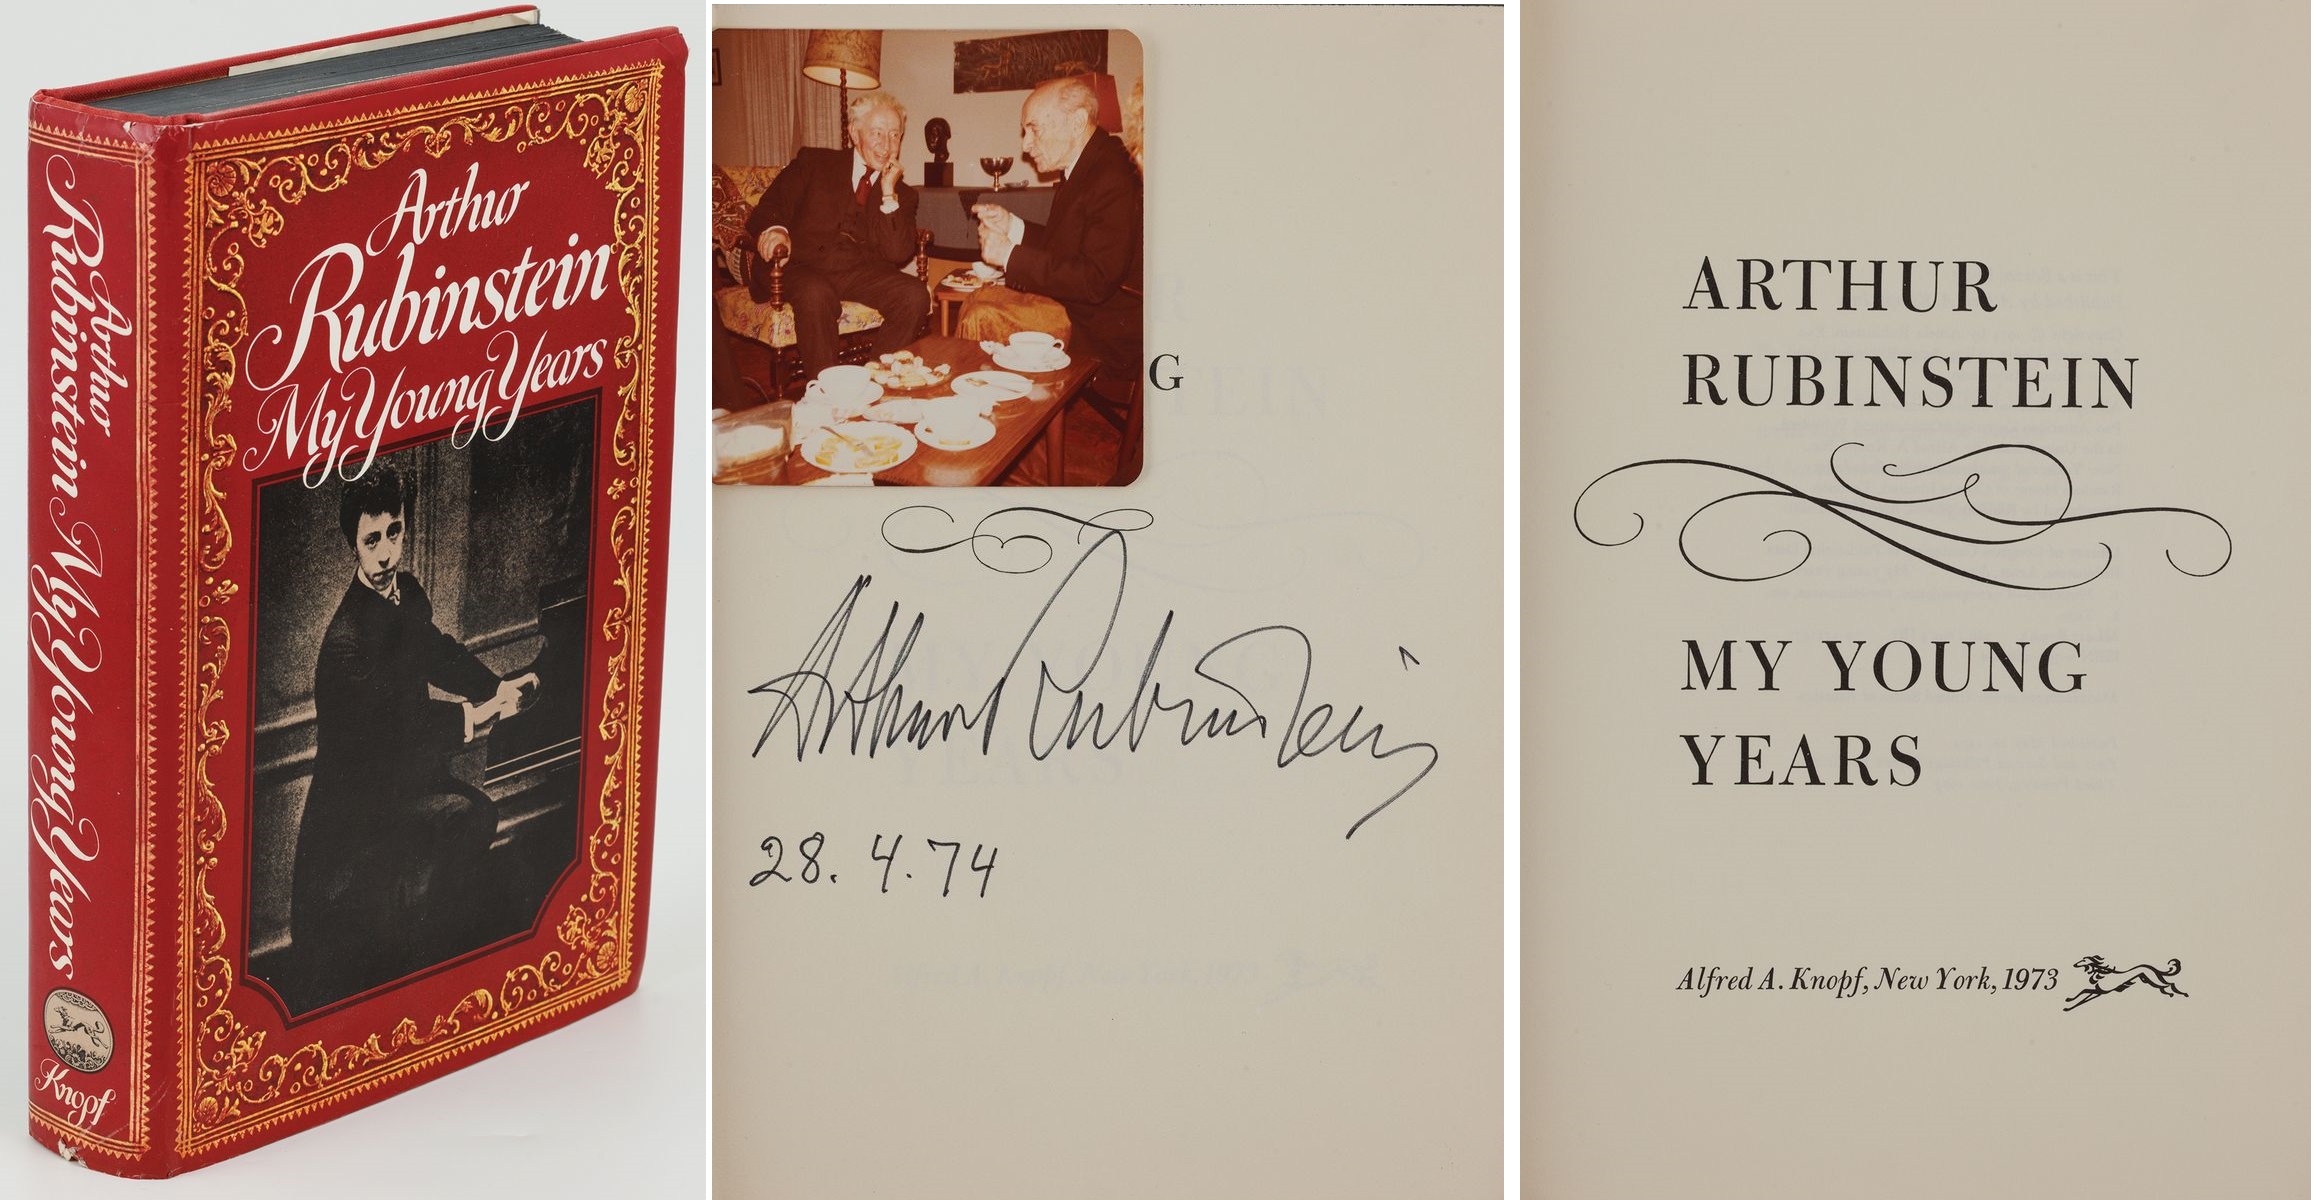 Arthur
Rubinstein
My Young Years
Arthur
Rubinstein
My Young Years
Knopf
G
Arthur Rubinstein
28. 4. 74
ARTHUR
RUBINSTEIN
MY YOUNG
YEARS
Alfred A. Knopf, New York, 1973